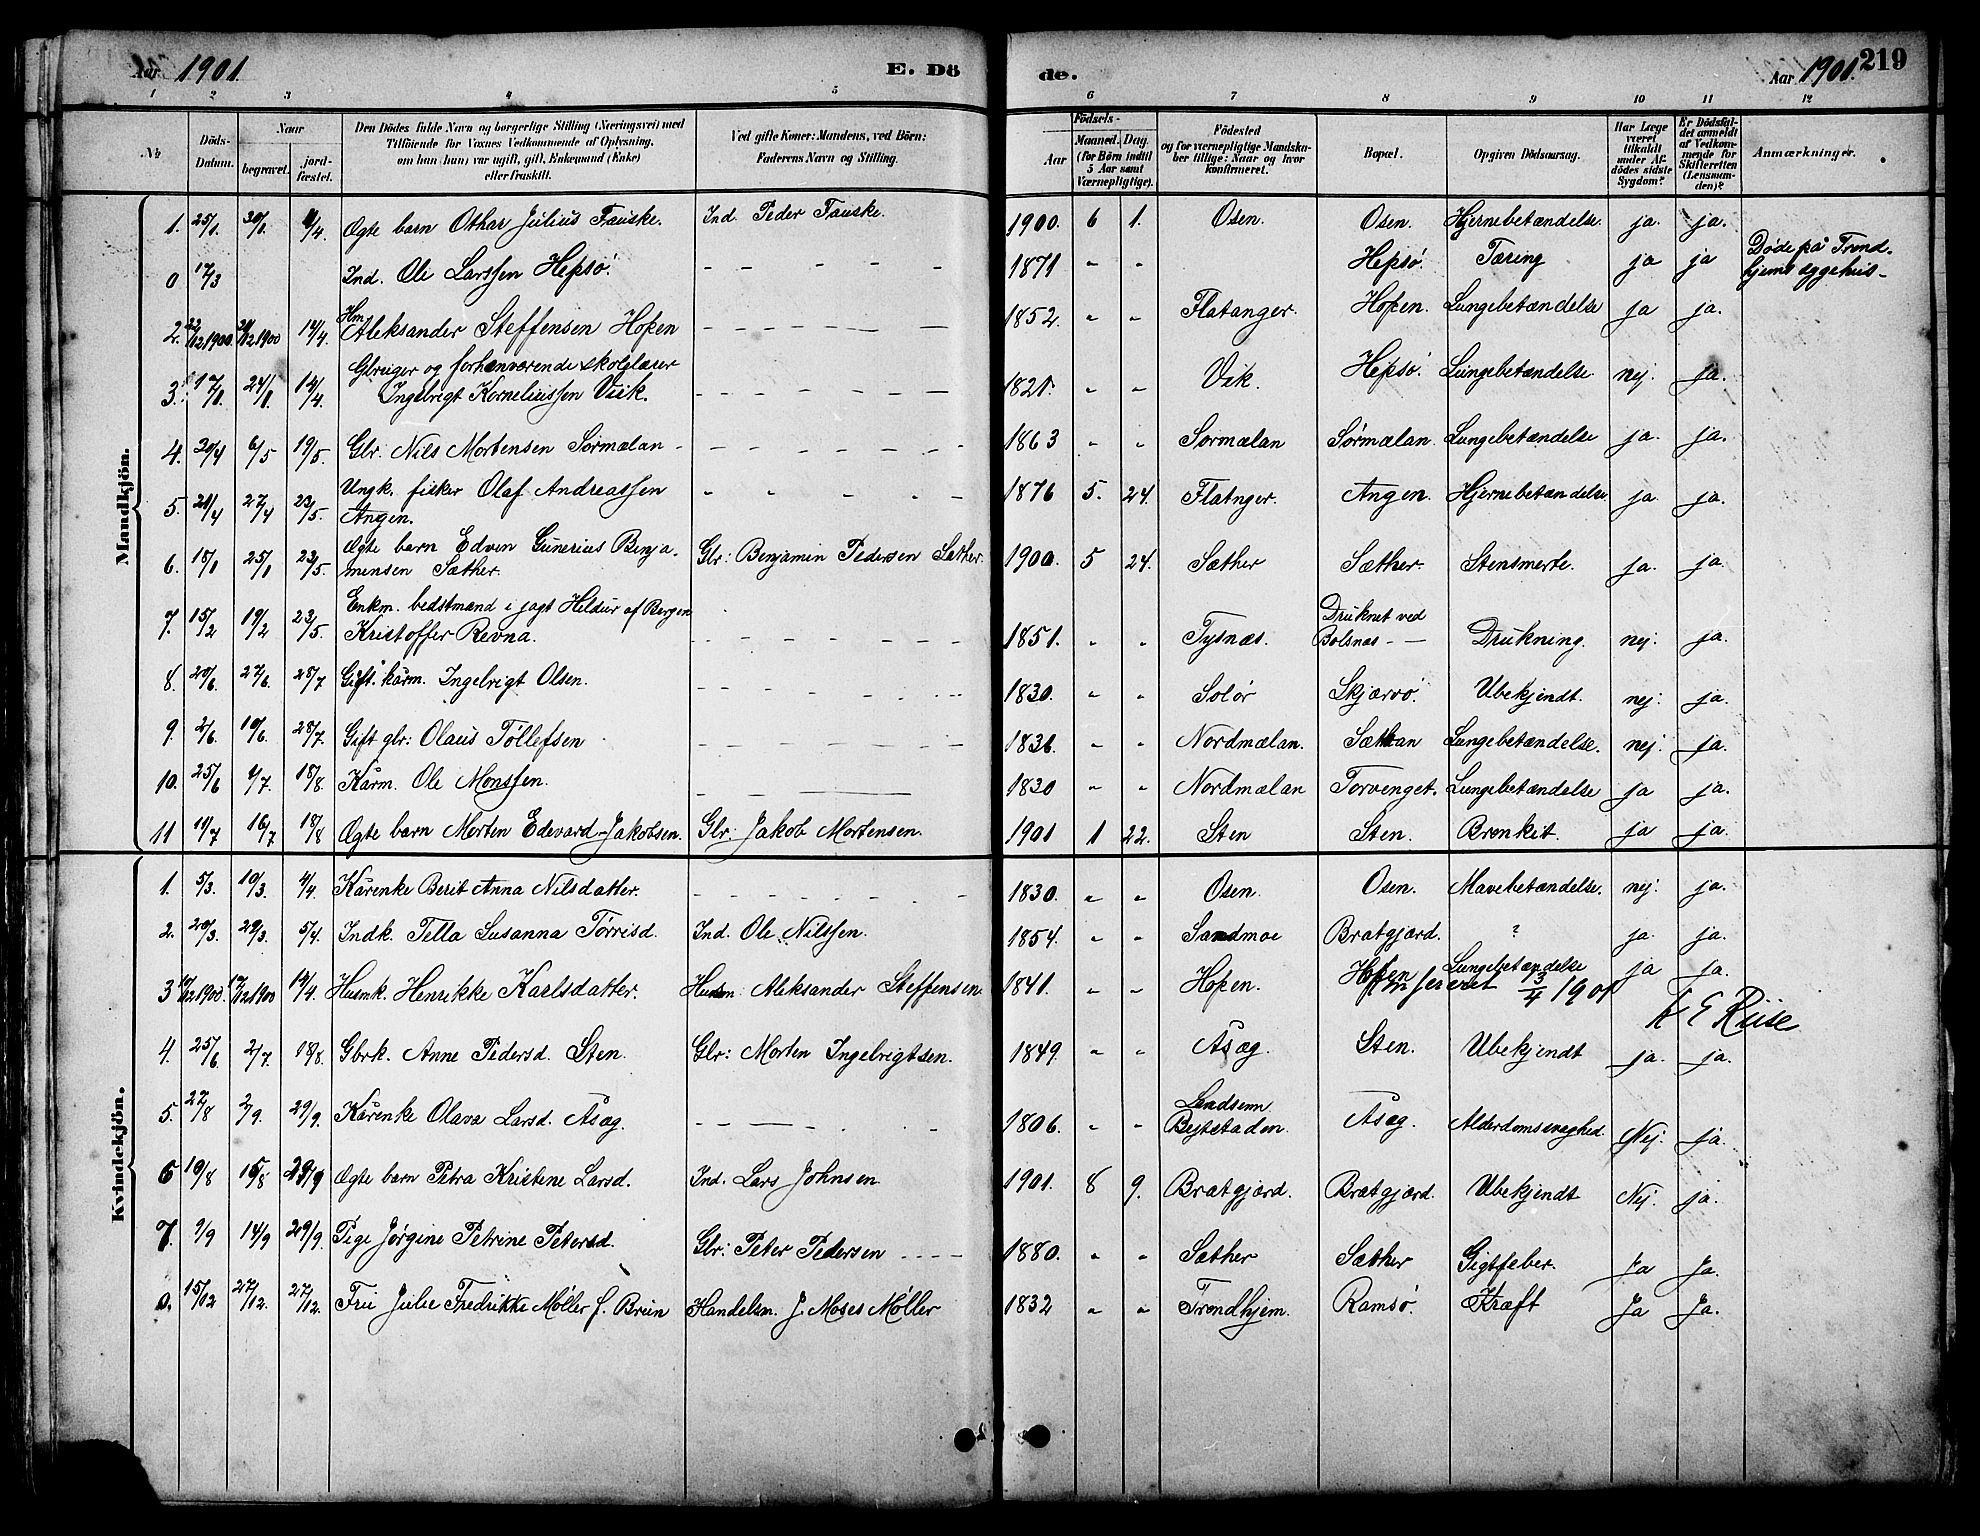 Aar 1901. E. Dö de. Aar 1901. 219
1 2 3 4 5 6 7 8 9 10 11 12
No
Döds-Datum.
Naar
begravet.
jord-fæstet.
Den Dödes fulde Navn og borgerlige Stilling (Næringsvei) med
Tilföiende for Voxnes Vedkommende af Oplysning,
om han (hun) var ugift, gift, Enkemand (Enke)
eller fraskilt.
Ved gifte Koner: Mandens, ved Börn:
Faderens Navn og Stilling.
Födsels-
Aar
Maaned. Dag.
(for Börn indtil
5 Aar samt
Værnepligtige).
Födested
og for værnepligtige Mandska-
ber tillige: Naar og hvor
konfirmeret.
Bopæl.
Opgiven Dödsaarsag.
Har Læge
været
tilkaldt
under Af-
dödes sidste
Sygdom?
Er Dödsfal-
det anmeldt
af Vedkom-
mende for
Skifteretten
(Lensman-
den)?
Anmærkninger.
Mandkjön.
1. 25/1 30/1 4/4 Ægte barn Othar Julius Fauske. Ind. Peder Fauske. 1900. 6 1. Osen. Osen. Hjernebetændelse. ja. ja.
0 17/3 Ind. Ole Larssen Hepsø. 1871 " " Hepsø. Tæring ja ja Døde på Trond-
hjems sygehus-
2. 22/12 1900. 28/12 1900 14/4. Hm Aleksander Steffensen Hopen 1852. " " Flatanger. Hopen. Lungebetændelse ja ja.
3. 17/1. 24/1 14/4 Gbreiger og forhenværende skolelærer
Ingebrigt Korneliussen Viik. 1821. " " Vik. Hepsø. Lungebetændelse. nej. ja.
4. 20/4 6/5 19/5. Gbr. Nils Mortensen Sørmælan 1863 " " Sørmælan Sørmælan. Lungebetændelse ja. ja.
5. 21/4 27/4 23/5. Ungk. fisker Olaf Andreassen
Angen. 1876 5. 24. Flatnger. Angen. Hjernebetændelse ja. ja.
6. 18/1 25/1 23/5. Ægte barn Edvin Gunerius Benja-
mensen Sæther. Gbr: Benjamen Pedersen Sæther. 1900. 5 24. Sæther Sæther. Stensmerte. ja. ja.
7. 15/2 19/2 23/5. Enkm. bedstmand i jagt Hildur af Bergen
Kristoffer Revna. 1851. " " Tysnæs. Druknet ved
Bolsnæs Drukning. nej. ja.
8. 20/6. 27/6. 28/7 Gift. kårm. Ingebrigt Olsen. 1830. " " Solør Skjærvø. Ubekjendt nej. ja.
9. 2/6. 10/6. 28/7. Gift gbr: Olaus Tøllefsen 1836 " " Nordmælan. Sætran Lungebetændelse. nej. ja.
10. 25/6 1/7. 18/8. Kårm. Ole Monssen. 1830 " " Nordmælan Torvenget. Lungebetændelse ja ja.
11 11/7 16/7 18/8 Ægte barn Morten Edevard Jakobsen. Gbr. Jakob Mortensen. 1901 1 22. Sten Sten. Bronkit. ja ja.
Kvindekjön.
1. 5/3. 10/3. 4/4. Kårenke Berit Anna Nilsdatter. 1830. " " Osen. Osen. Mavebetændelse. nej. ja.
2. 20/3. 29/3. 5/4. Indk. Tella Susanna Tørrisd. Ind. Ole Nilssen. 1854. " " Sandmoe Bratgjærd. ? ja. ja.
3 10/12 1900. 17/12 1900 14/4. Husmk. Henrikke Karlsdatter. Husm: Aleksander Steffensen. 1841. " " Hopen. Hopen Lungebetændelse ja ja.
Konfereret 13/4 1901
K E Riise
4. 25/6 2/7. 18/8. Gbrk. Anne Pedersd. Sten. Gbr: Morten Ingebrigtsen. 1849 " " Asæg. Sten. Ubekjendt ja. ja.
5. 27/8 2/9. 29/9. Kårenke Olava Larsd. Åsæg. 1806. " " Landsemn
Bejtstaden. Åsæg. Alderdomssvaghed. Nej. ja.
6 10/8 15/8 29/9 Ægte barn Petra Kristine Larsd. Ind. Lars Johnsen 1901. 8 9. Bratgjærd. Bratgjærd. Ubekjendt Nej. ja.
7. 9/9 14/9 29/9. Pige Jørgine Petrine Petersd. Gbr: Peter Pedersen 1880. " " Sæther Sæther Gigtfeber. Ja Ja.
0. 15/12 27/12. 27/12. Frü Julie Fredrikke Møller f. Brün Handelsm. J. Moses Møller 1832 " " Trondhjem. Ramsø. Kræft Ja Ja.